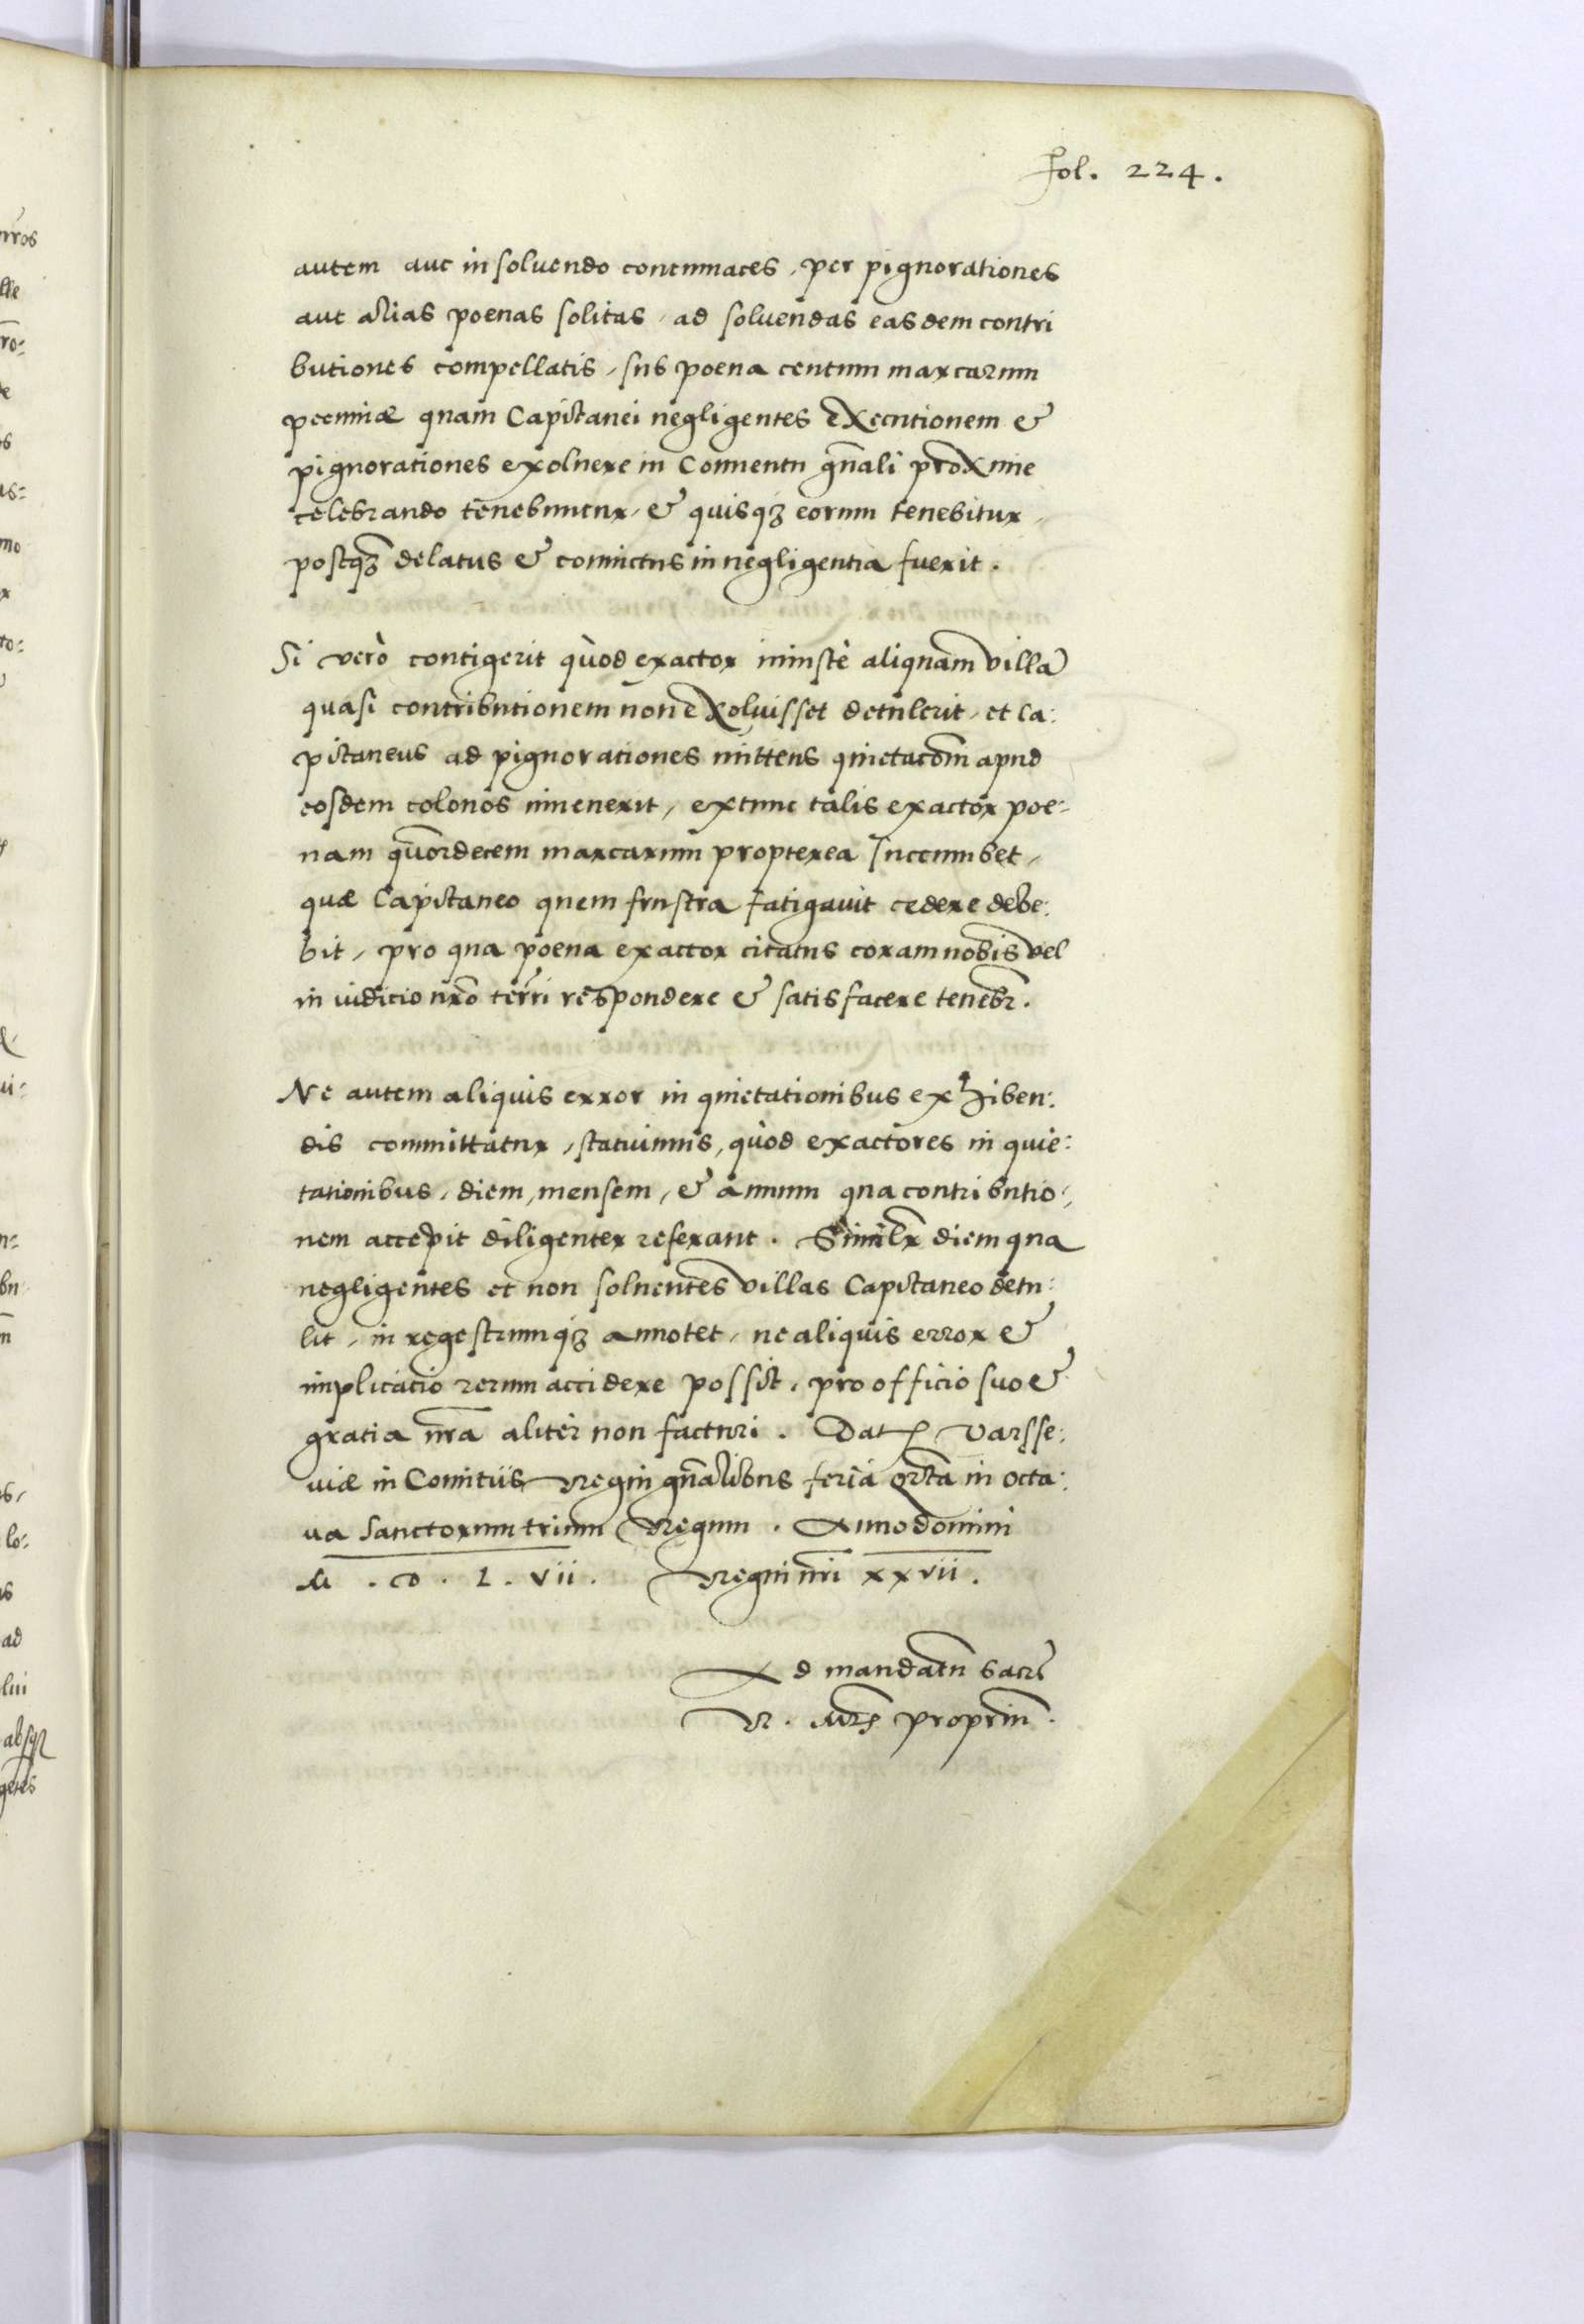 fol. 224.
autem aut in soluendo contumaces, per pignorationes
aut alias poenas solitas, ad soluendas easdem contri
butiones compellatis, sub poena centum marcarum
pecuniæ quam Capitanei negligentes Executionem &
pignorationes exoluere in Conuentu gñali proxime
celebrando tenebuntur, & quisqȝ eorum tenebitur,
postqȝ delatus & conuictus in negligentia fuerit.
Si verò contigerit quòd exactor iniustè aliquam villā
quasi contributionem non exoluisset detulerit, et Ca:
pitaneus ad pignorationes mittens quietacōm apud
eosdem colonos inuenerit, extunc talis exactor poe:
nam quōrdecem marcarum propterea Incumbet,
quæ Capitaneo quem frustra fatigauit cedere debe:
bit, pro qua poena exactor citatus coram nobis vel
in iudicio nr̄o terr̄i respondere & satisfacere tenebr̄.
Ne autem aliquis error in quietationibus exhiben:
dis committatur, statuimus, quòd exactores in quie:
tationibus, diem, mensem, & annum qua contributio:
nem accepit diligenter referant. Similr̄ diem qua
negligentes et non soluentes villas Capitaneo detu:
lit, in regestrumqȝ annotet, ne aliquis error &
implicatio rerum accidere possit, pro officio suo &
gratia nr̄a aliter non facturi. Dat. Varsse:
uiæ in Comitiis Regni gñalibus feria qrta in octa:
ua Sanctorum trium Regum. Anno domini
M. D. L. vii. Regni nr̄i xxvii.
Ad mandatū Sacr̄
R. Mtis propriū.